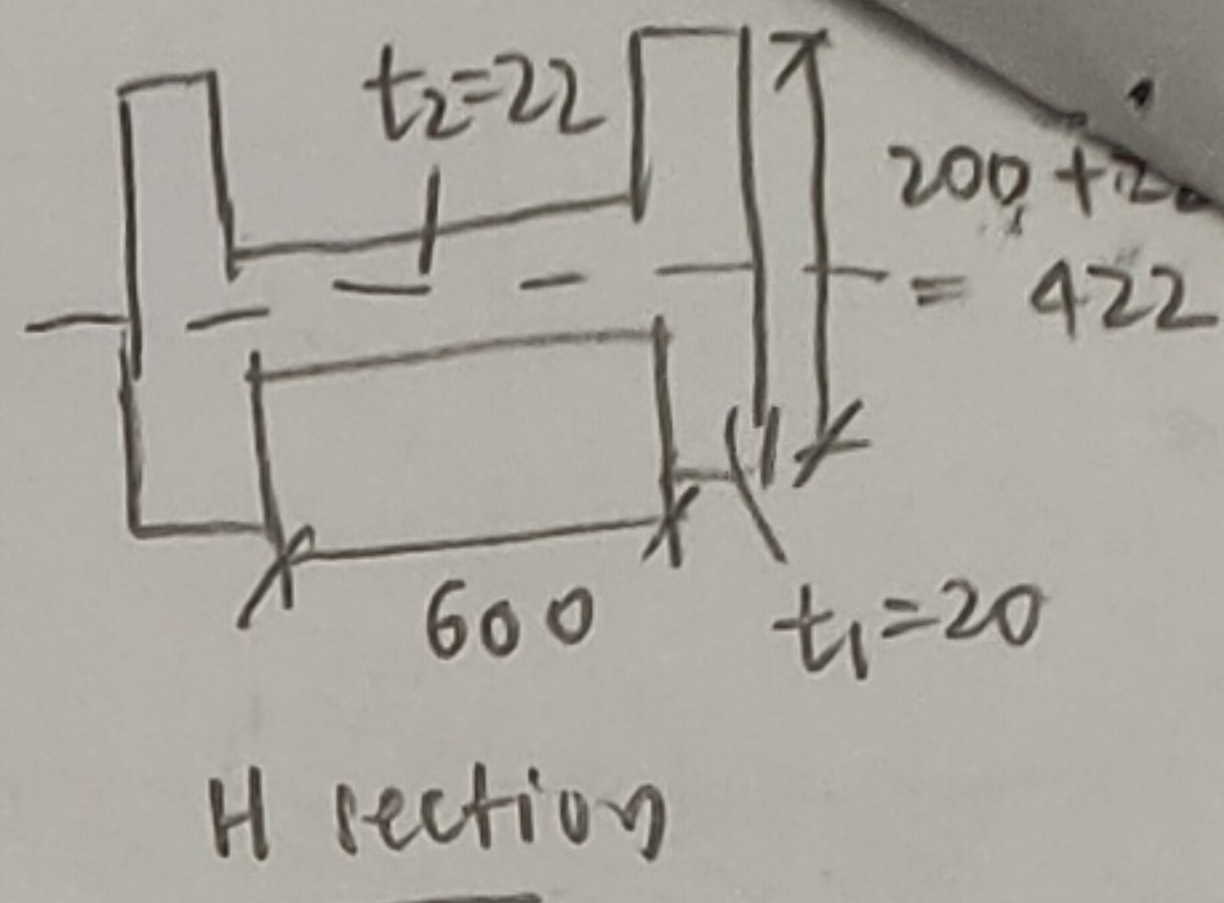 t₂=22
200 +
= 422
600
t₁=20
H section